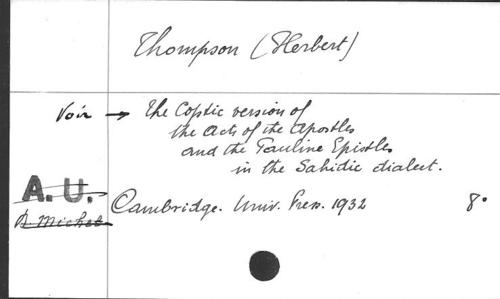 Thompson (Herbert)
Voir → The Coptic version of
the Acts of the Apostles
and the Pauline Epistles
in the Sahidic dialect.
A. U.
Cambridge. Univ. Press. 1932 8°
R. Michel